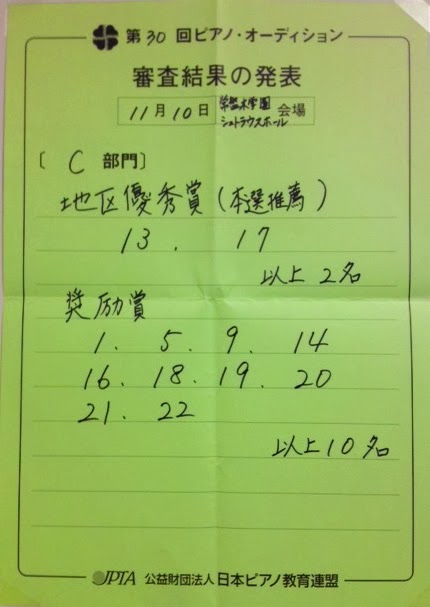 第30回ピアノ・オーディション
審査結果の発表
11月10日 常盤木学園 シュトラウスホール 会場
〔 C 部門〕
地区優秀賞(本選推薦)
13. 17
以上 2名
奨励賞
1. 5. 9. 14
16. 18. 19. 20
21. 22
以上10名
JPTA 公益財団法人 日本ピアノ教育連盟